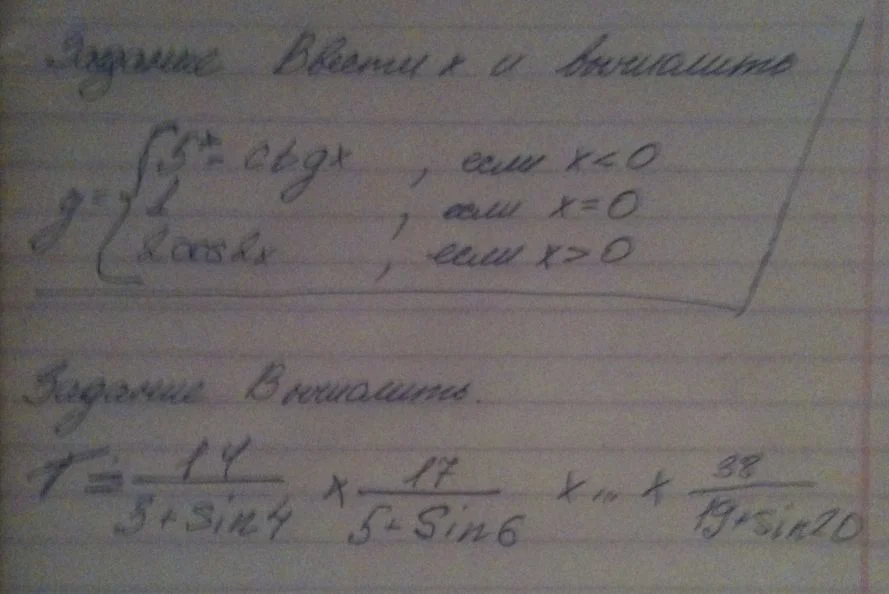 Задание Ввести x и вычислить
y = { 5ˣ - ctgx , если x < 0
1 , если x = 0
2cos2x , если x > 0
Задание Вычислить.
T = 14/(3+sin4) x 17/(5+Sin6) x ... x 38/(19+sin20)